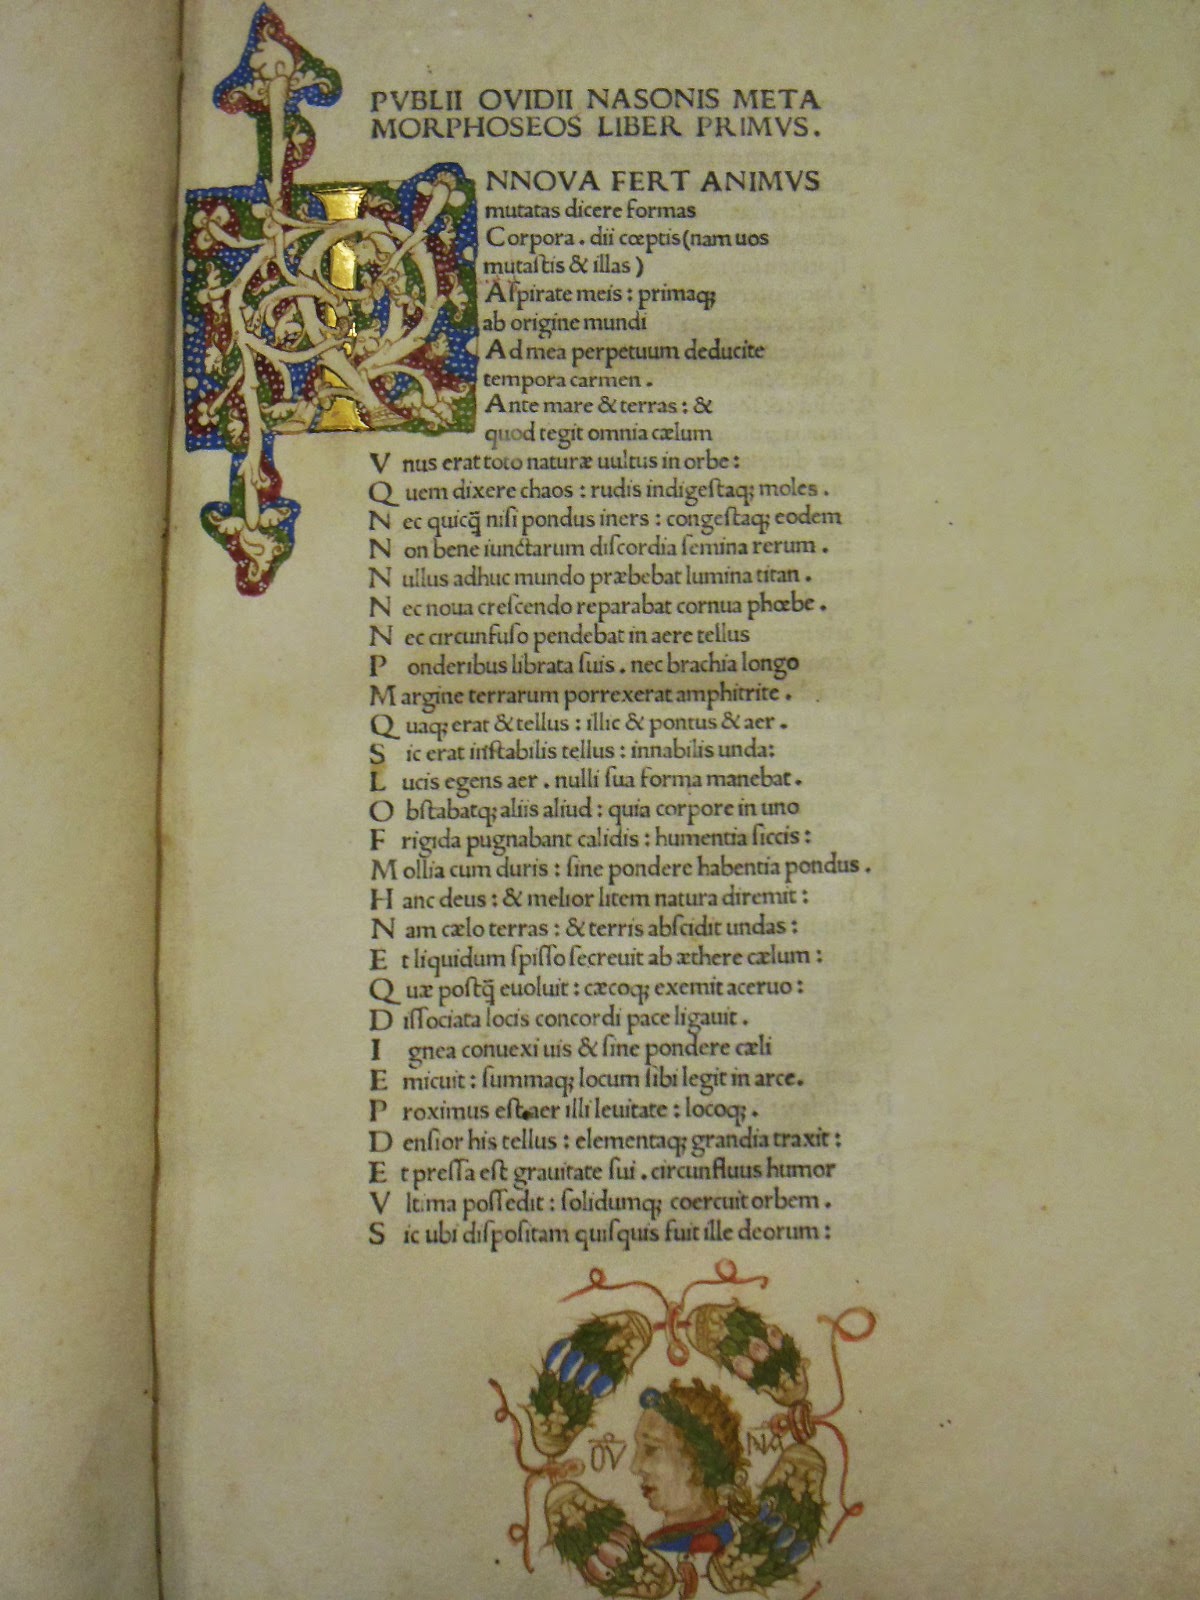 PVBLII OVIDII NASONIS META
MORPHOSEOS LIBER PRIMVS.
INNOVA FERT ANIMVS
mutatas dicere formas
Corpora. dii cœptis (nam uos
mutaſtis & illas)
Aſpirate meis: primaq;
ab origine mundi
Ad mea perpetuum deducite
tempora carmen.
Ante mare & terras: &
quod tegit omnia cælum
Vnus erat toto naturæ uultus in orbe:
Quem dixere chaos: rudis indigeſtaq; moles.
Nec quicq̃ niſi pondus iners: congeſtaq; eodem
Non bene iunctarum diſcordia ſemina rerum.
Nullus adhuc mundo præbebat lumina titan.
Nec noua creſcendo reparabat cornua phœbe.
Nec circunfuſo pendebat in aere tellus
Ponderibus librata ſuis. nec brachia longo
Margine terrarum porrexerat amphitrite.
Quaq; erat & tellus: illic & pontus & aer.
Sic erat inſtabilis tellus: innabilis unda:
Lucis egens aer. nulli ſua forma manebat.
Obſtabatq; aliis aliud: quia corpore in uno
Frigida pugnabant calidis: humentia ſiccis:
Mollia cum duris: ſine pondere habentia pondus.
Hanc deus: & melior litem natura diremit:
Nam cælo terras: & terris abſcidit undas:
Et liquidum ſpiſſo ſecreuit ab æthere cælum:
Quæ poſtq̃ euoluit: cæcoq; exemit aceruo:
Diſſociata locis concordi pace ligauit.
Ignea conuexi uis & ſine pondere cæli
Emicuit: ſummaq; locum ſibi legit in arce.
Proximus eſt aer illi leuitate: locoq;.
Denſior his tellus: elementaq; grandia traxit:
Et preſſa eſt grauitate ſui. circunfluus humor
Vltima poſſedit: ſolidumq; coercuit orbem.
Sic ubi diſpoſitam quiſquis fuit ille deorum:
OV NA